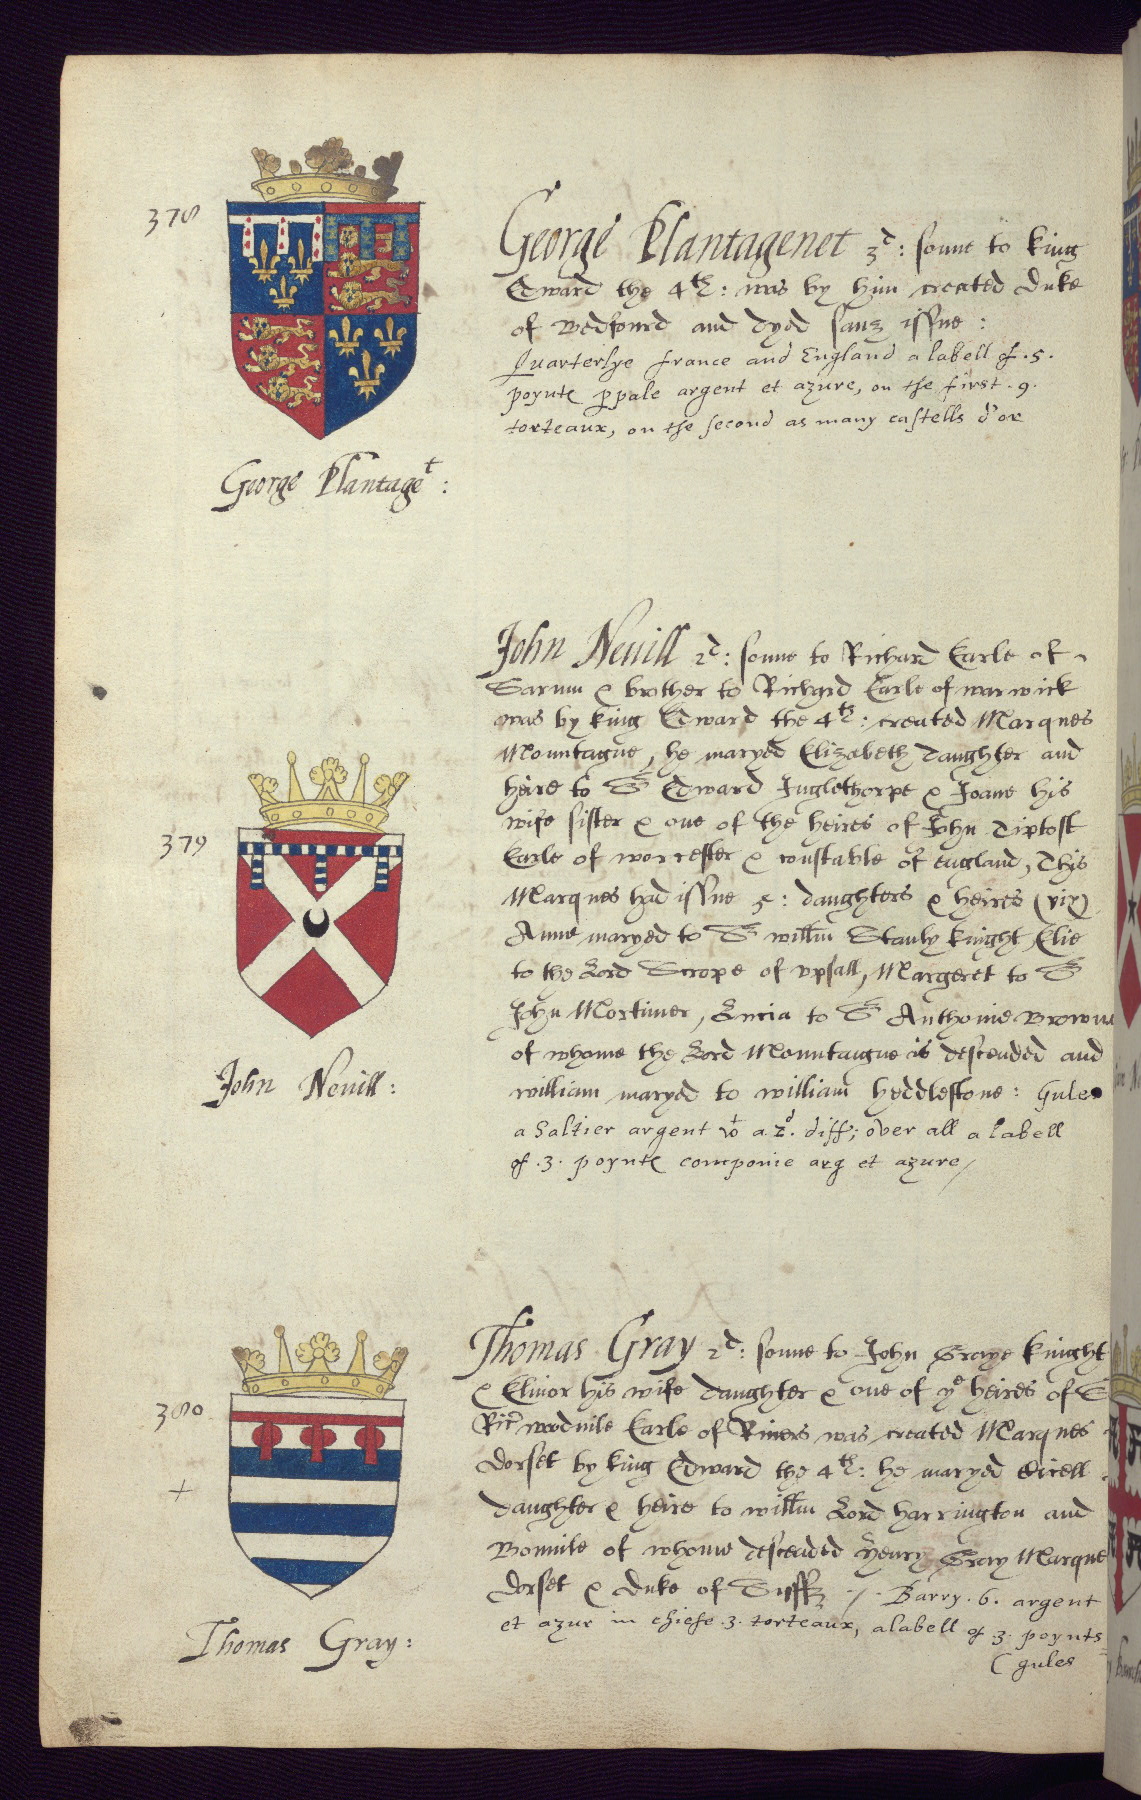 378
George Plantagenet 3d: sonne to king
Edward the 4th: was by him created Duke
of Bedfourd and dyed sanz issue:
Quarterlye france and England a labell of .5.
poynts p pale argent et azure, on the first .9.
torteaux, on the second as many castells d'or
George Plantaget:
John Nevill 2d: sonne to Richard Earle of
Sarum & brother to Richard Earle of warwick
was by king Edward the 4th: created Marques
Mountague, he maryed Elizabeth daughter and
heire to Sr Edward Inglethorpe & Joane his
wife sister & one of the heires of John Tiptoft
379
Earle of worcester & constable of England, This
Marques had issue 5: daughters & heires (viz)
Anne maryed to Sr willm Stanly knight, Eliz
to the Lord Scrope of vpsall, Margeret to Sr
John Mortimer, Lucia to Sr Anthonie Browne
of whome the Lord Mountaigue is descended and
william maryed to william Heddlestone: Gules
a Saltier argent wt a 2d. diff; over all a labell
of .3. poynts componie arg et azure/
John Nevill:
Thomas Gray 2d: sonne to John Graye knight
& Elinor his wife daughter & one of ye heires of Sr
380
Ric woodvile Earle of Rivers was created Marques
dorset by king Edward the 4th: he maryed Sicell
+
daughter & heire to willm Lord Harrington and
Bonvile of whome descended Henry Gray Marques
dorset & Duke of Suff / . Barry .6. argent
et azur in chiefe .3. torteaux, a labell of 3. poynts
( gules
Thomas Gray: